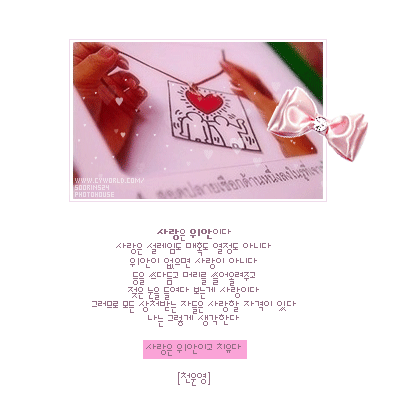 WWW.CYWORLD.COM/
SOORIN324
PHOTOHOUSE
사랑은 위안이다
사랑은 설레임도 매혹도 열정도 아니다
위안이 없으면 사랑이 아니다
등을 쓰다듬고 머리를 쓸어올려주고
젖은 눈을 들여다 보는게 사랑이다
그러므로 모든 상처받는 자들은 사랑할 자격이 있다
나는 그렇게 생각한다
사랑은 위안이고 치유다
[천운영]